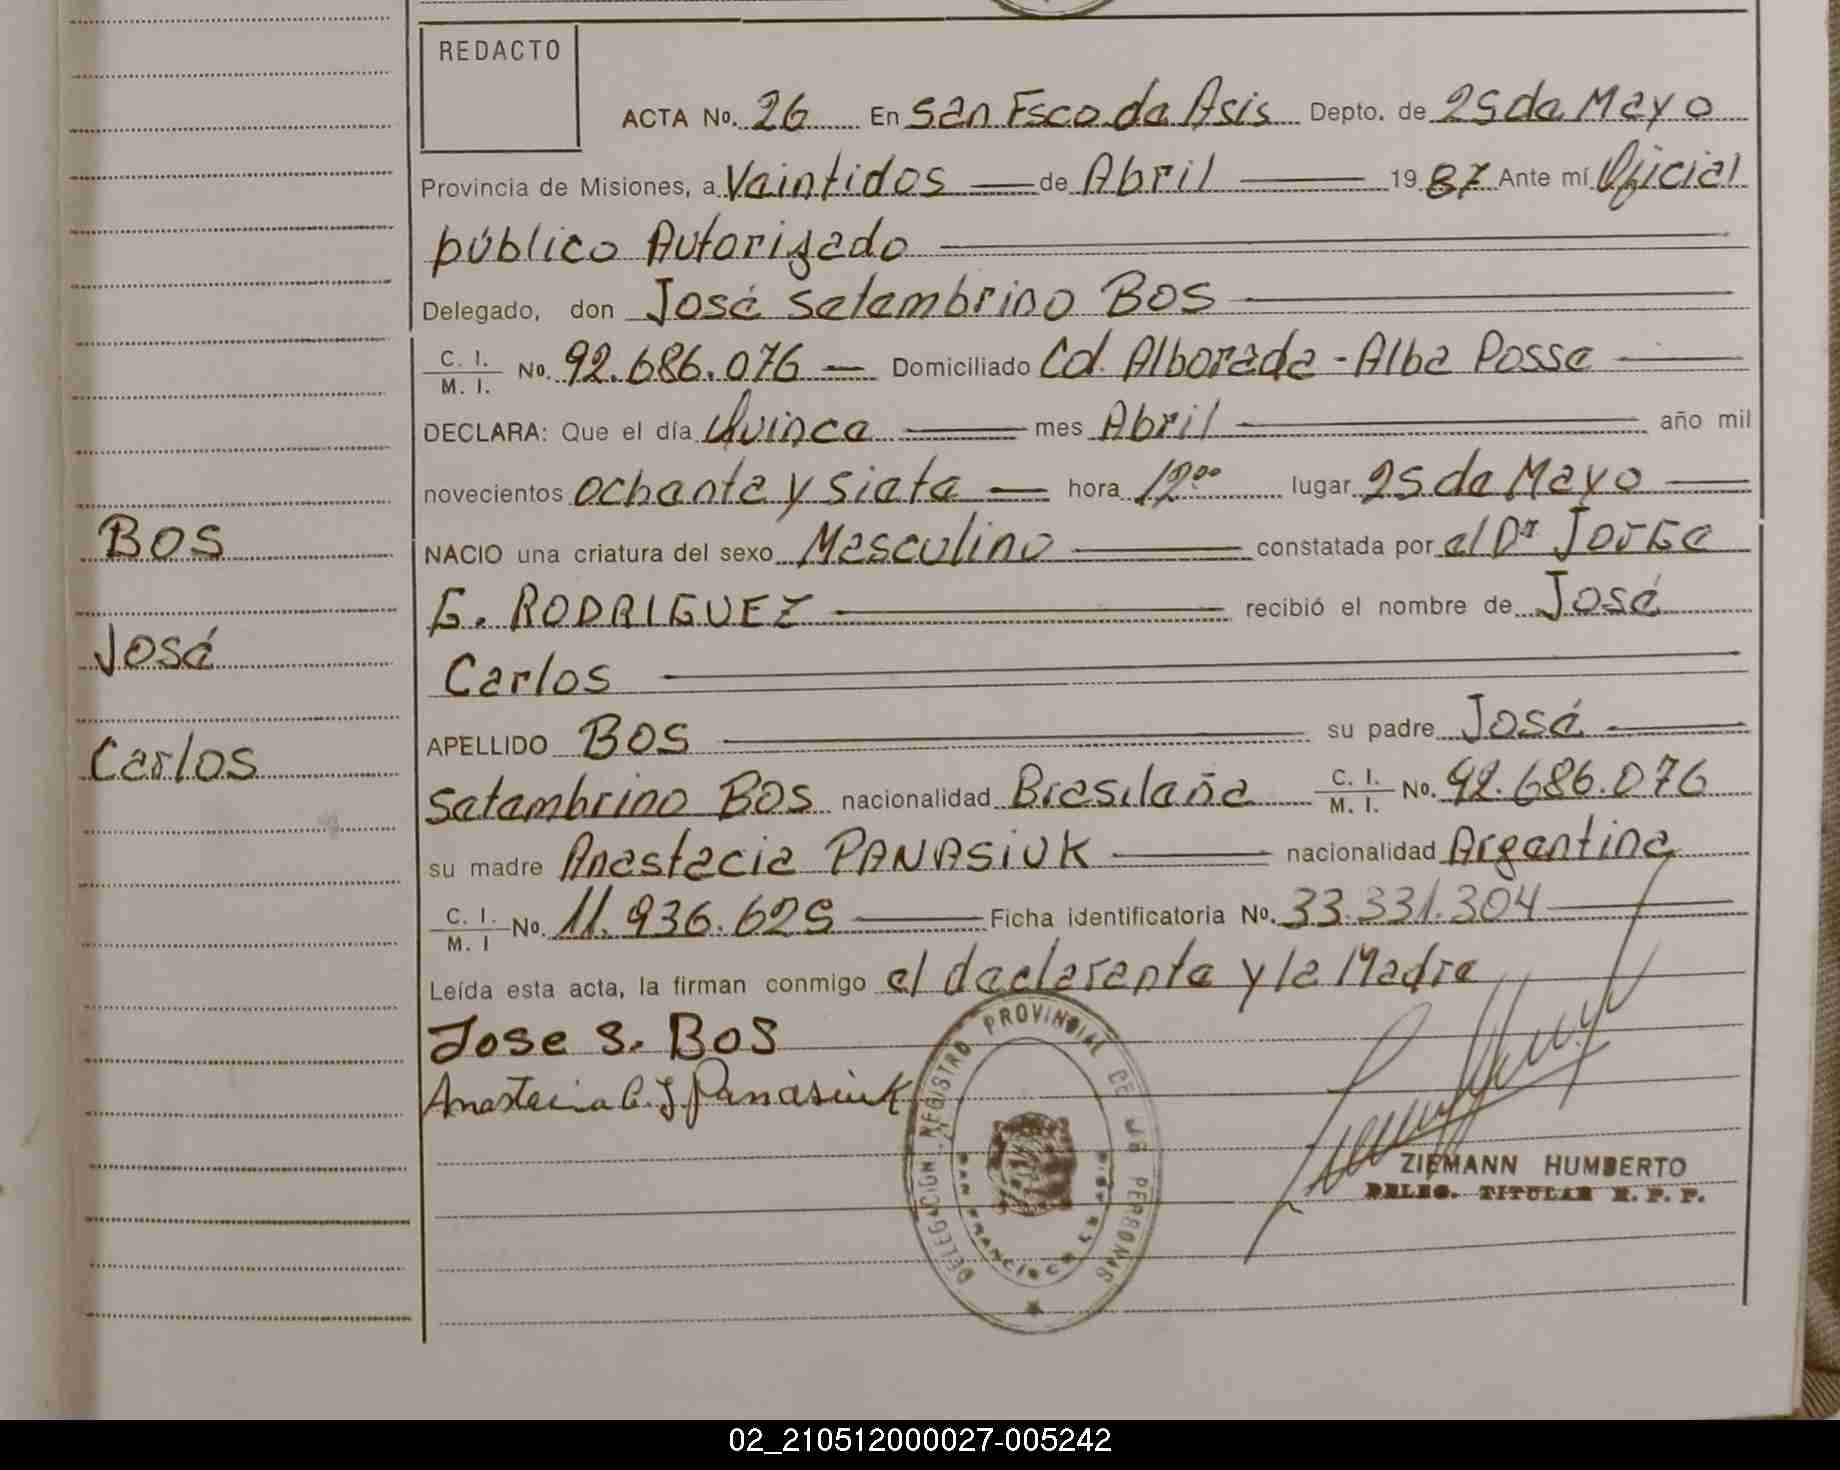 REDACTO
ACTA No. 26 En San Fsco de Asis Depto. de 25 de Mayo
Provincia de Misiones, a Veintidos de Abril 1987 Ante mí Oficial
público Autorizado
Delegado, don José Setembrino BOS
C. I. M. I. No. 92.686.076 Domiciliado Cd. Alborada - Alba Posse
DECLARA: Que el día Quince mes Abril año mil
novecientos ochenta y siete hora 12⁰⁰ lugar 25 de Mayo
BOS
NACIO una criatura del sexo Masculino constatada por el Dr JORGE
G. RODRIGUEZ recibió el nombre de José
José
Carlos
APELLIDO BOS su padre José
Carlos
Setembrino BOS nacionalidad Brasileña C. I. M. I. No. 92.686.076
su madre Anastacia PANASIUK nacionalidad Argentina
C. I. M. I No. 11.936.625 Ficha identificatoria No. 33.331.304
Leída esta acta, la firman conmigo el declarante y la Madre
Jose S. BOS
Panasiuk
DELEGACION REGISTRO PROVINCIAL DE LAS PERSONAS
SAN FRANCISCO
ZIEMANN HUMBERTO
DELEG. TITULAR R. P. P.
02_210512000027-005242